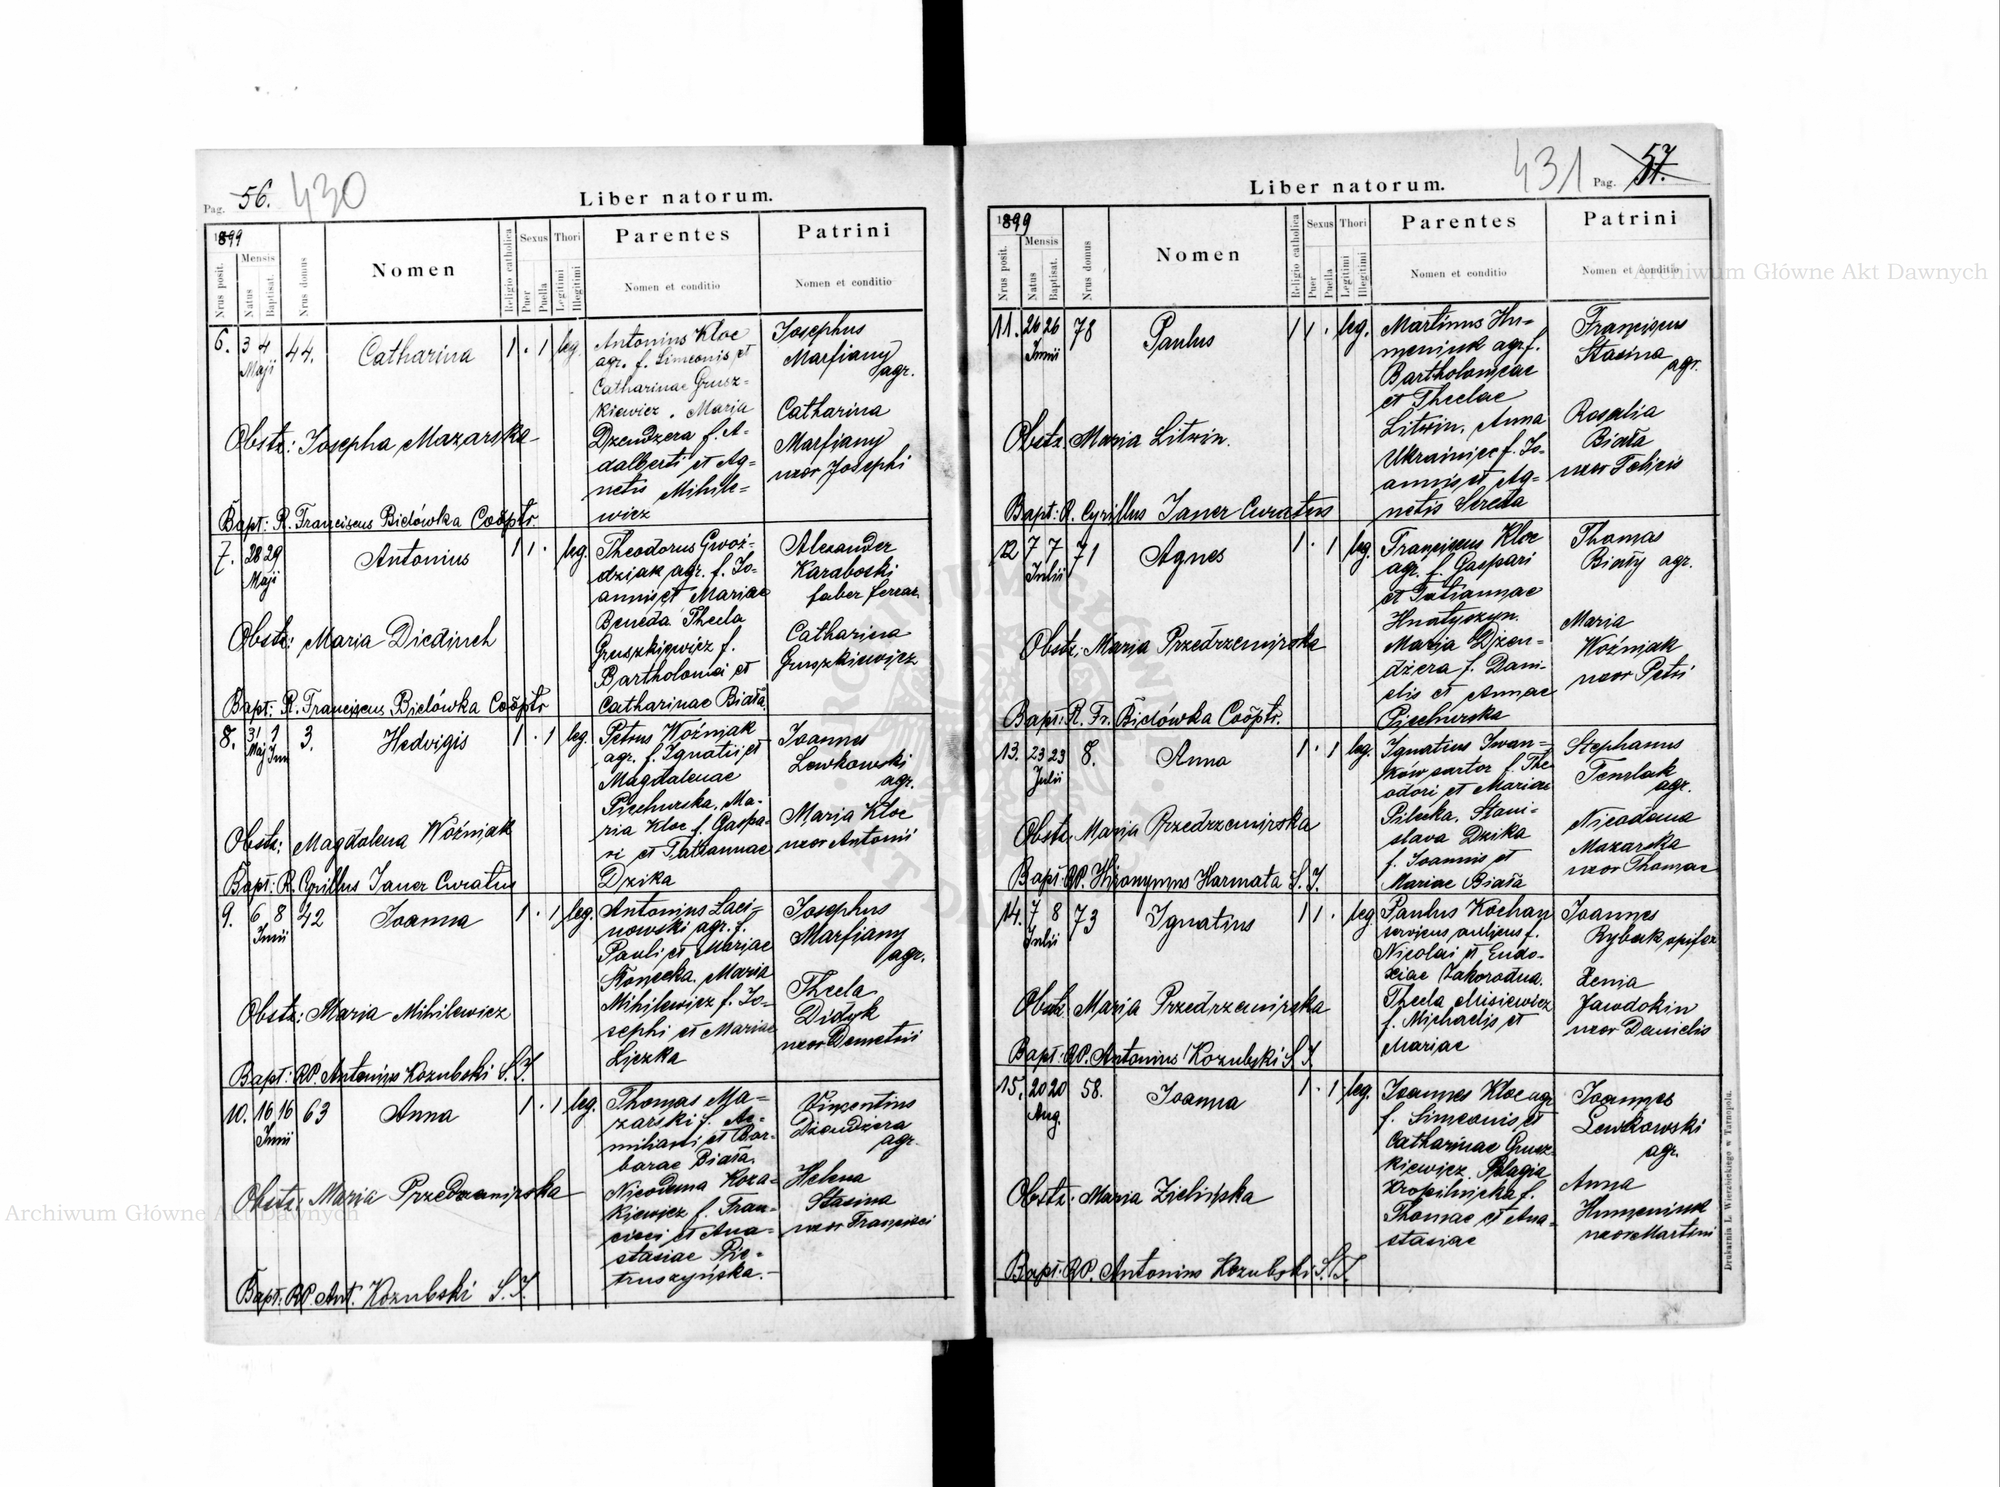 Pag. 56. 430
Liber natorum.
1899
Nrus posit.
Mensis
Natus
Baptisat.
Nrus domus
Nomen
Religio catholica
Sexus
Puer
Puella
Thori
Legitimi
Illegitimi
Parentes
Nomen et conditio
Patrini
Nomen et conditio
6. 3 4 Maji 44. Catharina 1 . 1 leg.
Antonius Kloc
agr. f. Simeonis et
Catharinae Grusz=
kiewicz. Maria
Dzendzera f. A=
dalberti et Ag=
netis Mihile=
wicz
Josephus
Marfiany
agr.
Catharina
Marfiany
uxor Josephi
Obstz: Josepha Mazarska
Bapt: R. Franciscus Bielówka Coöptr.
7. 28 29 Maji Antonius 1 1 . leg.
Theodorus Gwoź=
dziak agr. f. Jo=
annis et Mariae
Beneda Thecla
Gruszkiewicz f.
Bartholomei et
Catharinae Biała
Alexander
Karaboski
faber ferrar.
Catharina
Gruszkiewicz
Obstz: Maria Diedinch
Bapt: R. Franciscus Bielówka Coöptr
8. 31 1 Maj Jun 3. Hedvigis 1 . 1 leg.
Petrus Woźniak
agr. f. Ignatii et
Magdalenae
Piechurska. Ma=
ria Kloc f. Gaspa=
ri et Tatiannae
Dzika
Joannes
Lewkowski
agr.
Maria Kloc
uxor Antonii
Obstz: Magdalena Woźniak
Bapt: R. Cyrillus Janer Curatus
9. 6 8 Junii 42 Joanna 1 . 1 leg.
Antonius Laci=
nowski agr. f.
Pauli et Mariae
Słonecka. Maria
Mihilewicz f. Jo=
sephi et Mariae
Liczka
Josephus
Marfiany
agr.
Thecla
Didyk
uxor Demetrii
Obstz: Maria Mihilewicz
Bapt: RP. Antonius Kozubski S.J.
10. 16 16 Junii 63 Anna 1 . 1 leg.
Thomas Ma=
zarski f. Ae=
miliani et Bar=
barae Biała.
Nicodema Koza=
kiewicz f. Fran=
cisci et Ana=
stasiae Pie=
truszyńska.
Vincentius
Dzendzera
agr.
Helena
Stasina
uxor Francisci
Obstz: Maria Przedrzemirska
Bapt: RP. Ant. Kozubski S.J.
Liber natorum.
431 Pag. 57.
1899
Nrus posit.
Mensis
Natus
Baptisat.
Nrus domus
Nomen
Religio catholica
Sexus
Puer
Puella
Thori
Legitimi
Illegitimi
Parentes
Nomen et conditio
Patrini
Nomen et conditio
11. 26 26 Junii 78 Paulus 1 1 . leg.
Martinus Hu=
meniuk agr. f.
Bartholomeae
et Theclae
Litwin. Anna
Ukrainiec f. Jo=
annis et Ag=
netis Sereda
Franciscus
Stasina
agr.
Rosalia
Biała
uxor Felicis
Obstz Maria Litwin.
Bapt: R. Cyrillus Janer Curatus
12 7 7 Julii 71 Agnes 1 . 1 leg.
Franciscus Kloc
agr. f. Gaspari
et Tatiannae
Hnatyszyn.
Maria Dzen=
dzera f. Dani=
elis et Annae
Piechurska
Thomas
Biały agr.
Maria
Woźniak
uxor Petri
Obstz: Maria Przedrzemirska
Bapt: R. Fr. Bielówka Coöptr.
13. 23 23 Julii 8. Anna 1 . 1 leg.
Ignatius Iwan=
ków sartor f. The
odori et Mariae
Pilecka. Stani=
slava Dzika
f. Joannis et
Mariae Biała
Stephanus
Temlak
agr.
Nicodema
Mazarska
uxor Thomae
Obstz: Maria Przedrzemirska
Bapt: RP. Hieronymus Harmata S.J.
14. 7 8 Julii 73 Ignatius 1 1 . leg
Paulus Kochan
servicus aulicus f.
Nicolai et Eudo=
xiae Zahorodna.
Thecla Misiewicz
f. Michaelis et
Mariae
Joannes
Rybak opifex
Xenia
Jawdokin
uxor Danielis
Obstz Maria Przedrzemirska
Bapt: RP. Antonius Kozubski S.J.
15. 20 20 Aug. 58. Joanna 1 . 1 leg.
Joannes Kloc agr
f. Simeonis et
Catharinae Grusz
kiewicz. Pelagia
Kropilnicka f.
Thomae et Ana=
stasiae
Joannes
Lewkowski
agr.
Anna
Humeniuk
uxor Martini
Obstz: Maria Zielińska
Bapt: RP. Antonius Kozubski S.J.
Drukarnia L. Wierzbickiego w Tarnopolu.
Archiwum Główne Akt Dawnych
Archiwum Główne Akt Dawnych